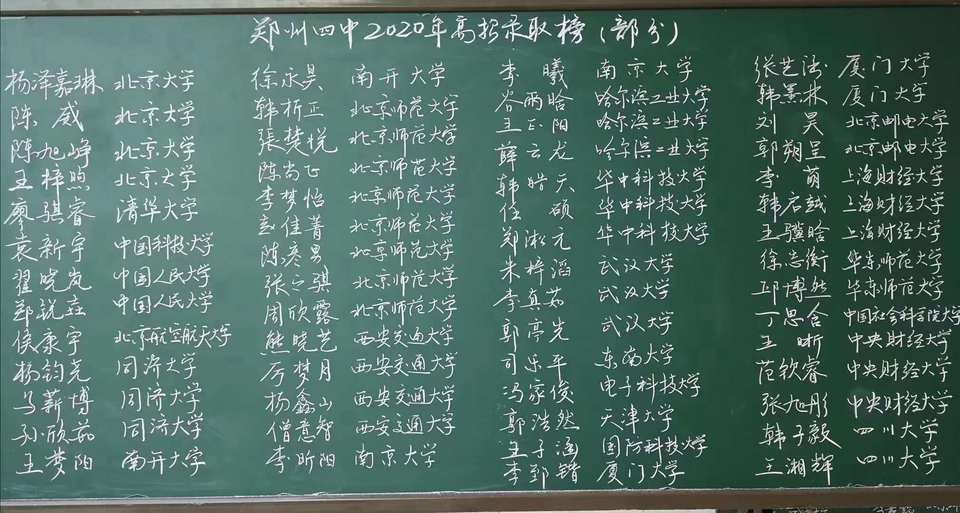 郑州四中2020年高招录取榜(部分)
杨泽嘉琳 北京大学
陈威 北京大学
陈旭峥 北京大学
王梓煦 北京大学
廖骐睿 清华大学
袁新宇 中国科技大学
翟晓岚 中国人民大学
中国人民大学
侯康宇 北京航空航天大学
杨钧尧 同济大学
马薪博 同济大学
孙欣茹 同济大学
王梦阳 南开大学
徐永昊 南开大学
韩析正 北京师范大学
張楚悦 北京师范大学
陈尚正 北京师范大学
李梦怡 北京师范大学
孟佳菁 北京师范大学
陈彦男 北京师范大学
张之骐 北京师范大学
周欣露 北京师范大学
熊晓艺 西安交通大学
厉梦月 西安交通大学
杨鑫山 西安交通大学
僧意智 西安交通大学
李昕阳 南京大学
李曦 南京大学
谷雨晗 哈尔滨工业大学
王正阳 哈尔滨工业大学
薛云龙 哈尔滨工业大学
韩皓天 华中科技大学
任硕 华中科技大学
郑淞元 华中科技大学
朱梓滔 武汉大学
李真茹 武汉大学
郭亭先 武汉大学
司乐平 东南大学
冯家俊 电子科技大学
郭浩然 天津大学
王子涵 国防科技大学
李郅锴 厦门大学
张艺涛 厦门大学
韩景林 厦门大学
刘昊 北京邮电大学
郭朔呈 北京邮电大学
李萌 上海财经大学
韩启越 上海财经大学
王骥晗 上海财经大学
徐志衡 华东师范大学
邱博然 华东师范大学
丁思合 中国社会科学院大学
王晰 中央财经大学
范钦睿 中央财经大学
张旭彤 中央财经大学
韩子毅 四川大学
王湘辉 四川大学